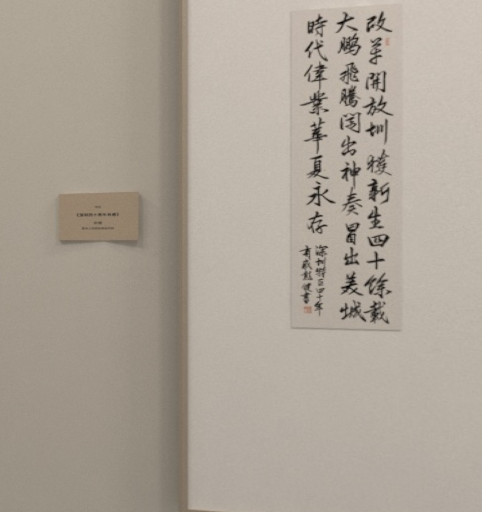 改革開放圳獲新生四十餘載
大鵬飛騰闯出神奏冒出美城
時代偉業華夏永存
深圳特区四十年